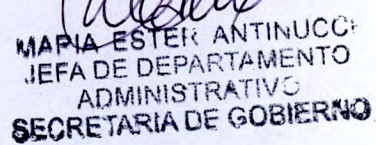 MARIA ESTER ANTINUCCI
JEFA DE DEPARTAMENTO
ADMINISTRATIVO
SECRETARIA DE GOBIERNO